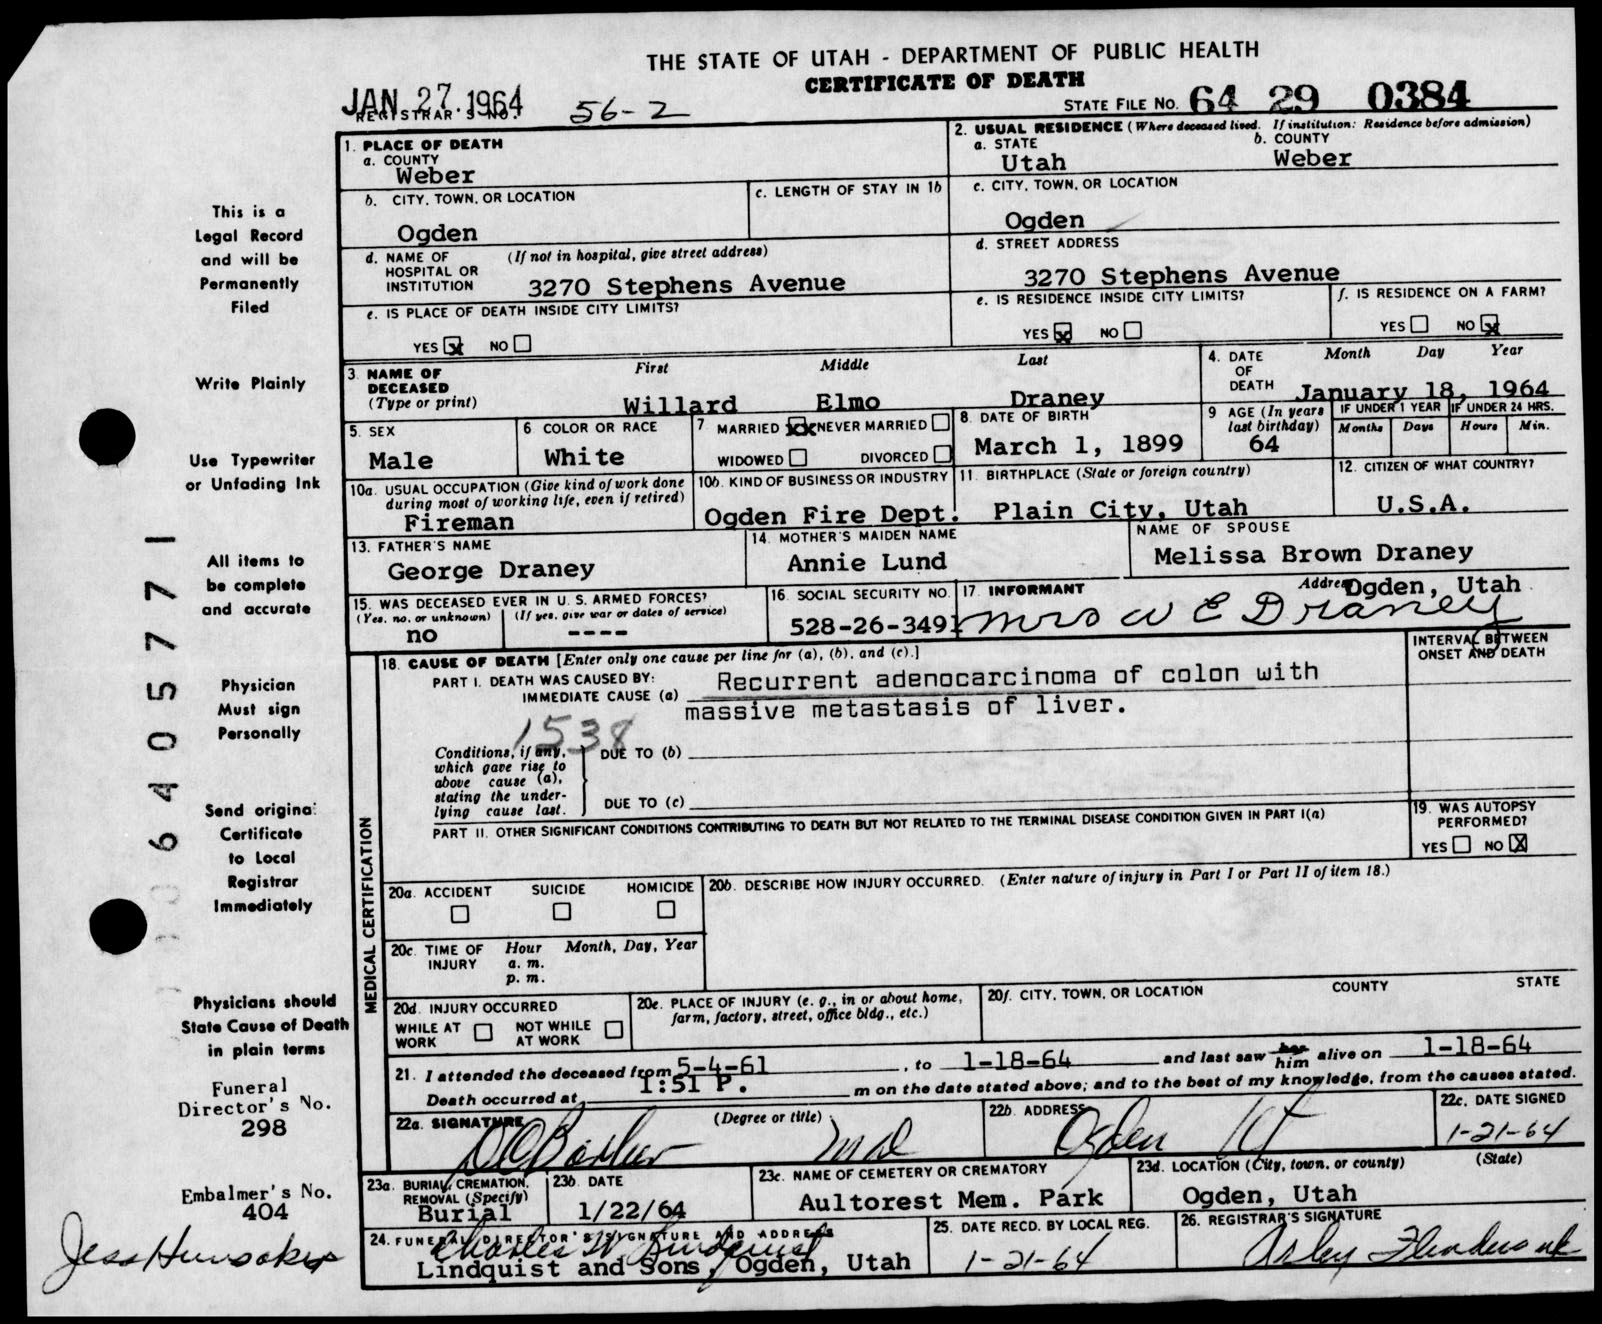 THE STATE OF UTAH - DEPARTMENT OF PUBLIC HEALTH
CERTIFICATE OF DEATH
JAN 27 1964
REGISTRAR'S NO. 56-2
STATE FILE NO. 64 29 0384
1. PLACE OF DEATH
a. COUNTY
Weber
2. USUAL RESIDENCE (Where deceased lived. If institution: Residence before admission)
a. STATE
Utah
b. COUNTY
Weber
b. CITY, TOWN, OR LOCATION
Ogden
c. LENGTH OF STAY IN 1b
c. CITY, TOWN, OR LOCATION
Ogden
d. NAME OF HOSPITAL OR INSTITUTION
(If not in hospital, give street address)
3270 Stephens Avenue
d. STREET ADDRESS
3270 Stephens Avenue
e. IS PLACE OF DEATH INSIDE CITY LIMITS?
YES X NO
e. IS RESIDENCE INSIDE CITY LIMITS?
YES X NO
f. IS RESIDENCE ON A FARM?
YES NO X
3. NAME OF DECEASED
(Type or print)
First Middle Last
Willard Elmo Draney
4. DATE OF DEATH
Month Day Year
January 18, 1964
5. SEX
Male
6 COLOR OR RACE
White
7 MARRIED XX NEVER MARRIED
WIDOWED DIVORCED
8. DATE OF BIRTH
March 1, 1899
9 AGE (In years last birthday)
64
IF UNDER 1 YEAR
Months Days
IF UNDER 24 HRS.
Hours Min.
10a. USUAL OCCUPATION (Give kind of work done during most of working life, even if retired)
Fireman
10b. KIND OF BUSINESS OR INDUSTRY
Ogden Fire Dept.
11. BIRTHPLACE (State or foreign country)
Plain City, Utah
12. CITIZEN OF WHAT COUNTRY?
U.S.A.
13. FATHER'S NAME
George Draney
14. MOTHER'S MAIDEN NAME
Annie Lund
NAME OF SPOUSE
Melissa Brown Draney
15. WAS DECEASED EVER IN U. S. ARMED FORCES?
(Yes, no, or unknown) (If yes, give war or dates of service)
no ----
16. SOCIAL SECURITY NO.
528-26-3491
17. INFORMANT
Address Ogden, Utah
Mrs W E Draney
MEDICAL CERTIFICATION
18. CAUSE OF DEATH [Enter only one cause per line for (a), (b), and (c).]
INTERVAL BETWEEN ONSET AND DEATH
PART I. DEATH WAS CAUSED BY:
IMMEDIATE CAUSE (a) Recurrent adenocarcinoma of colon with
massive metastasis of liver.
1538
Conditions, if any, which gave rise to above cause (a), stating the underlying cause last.
DUE TO (b)
DUE TO (c)
PART II. OTHER SIGNIFICANT CONDITIONS CONTRIBUTING TO DEATH BUT NOT RELATED TO THE TERMINAL DISEASE CONDITION GIVEN IN PART I(a)
19. WAS AUTOPSY PERFORMED?
YES NO X
20a. ACCIDENT SUICIDE HOMICIDE
20b. DESCRIBE HOW INJURY OCCURRED. (Enter nature of injury in Part I or Part II of item 18.)
20c. TIME OF INJURY
Hour Month, Day, Year
a. m.
p. m.
20d. INJURY OCCURRED
WHILE AT WORK NOT WHILE AT WORK
20e. PLACE OF INJURY (e. g., in or about home, farm, factory, street, office bldg., etc.)
20f. CITY, TOWN, OR LOCATION COUNTY STATE
21. I attended the deceased from 5-4-61, to 1-18-64 and last saw her him alive on 1-18-64
Death occurred at 1:51 P. m on the date stated above; and to the best of my knowledge, from the causes stated.
22a. SIGNATURE (Degree or title)
MD
22b. ADDRESS
Ogden Ut
22c. DATE SIGNED
1-21-64
23a. BURIAL, CREMATION, REMOVAL (Specify)
Burial
23b. DATE
1/22/64
23c. NAME OF CEMETERY OR CREMATORY
Aultorest Mem. Park
23d. LOCATION (City, town, or county) (State)
Ogden, Utah
24. FUNERAL DIRECTOR'S SIGNATURE AND ADDRESS
Charles W. Lindquist
Lindquist and Sons, Ogden, Utah
25. DATE RECD. BY LOCAL REG.
1-21-64
26. REGISTRAR'S SIGNATURE
This is a
Legal Record
and will be
Permanently
Filed
Write Plainly
Use Typewriter
or Unfading Ink
All items to
be complete
and accurate
Physician
Must sign
Personally
Send original
Certificate
to Local
Registrar
Immediately
Physicians should
State Cause of Death
in plain terms
Funeral
Director's No.
298
Embalmer's No.
404
Jess Hunsaker
6405771